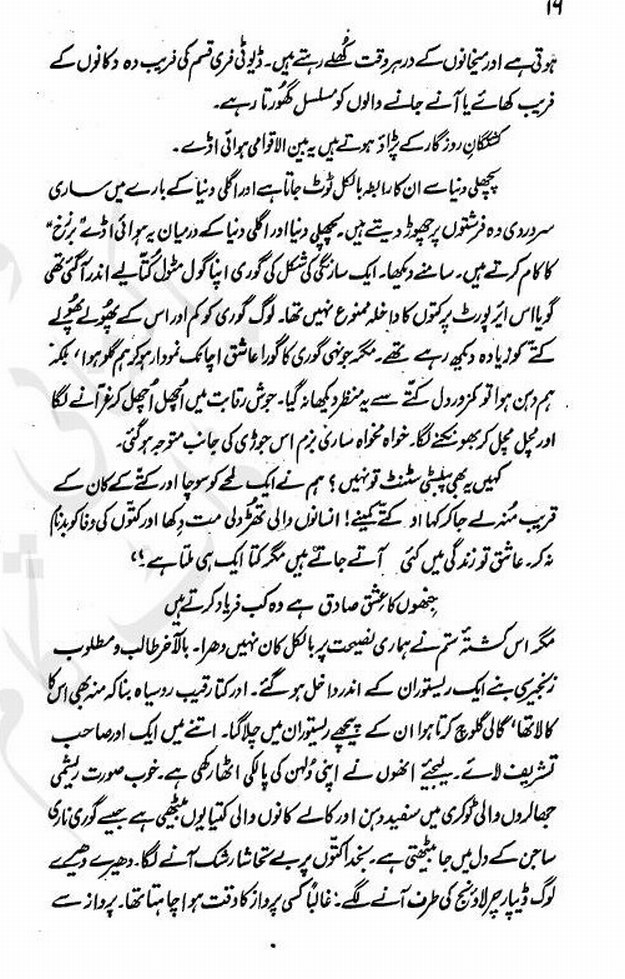 ۱۹
ہوتی ہے اور میخانوں کے در ہر وقت کُھلے رہتے ہیں۔ ڈیوٹی فری قسم کی فریب دہ دکانوں کے
فریب کھائے یا آنے جانے والوں کو مسلسل گھورتا رہے۔
کشتگانِ روزگار کے پڑاؤ ہوتے ہیں یہ بین الاقوامی ہوائی اڈے۔
پچھلی دنیا سے ان کا رابطہ بالکل ٹوٹ جاتا ہے اور اگلی دنیا کے بارے میں ساری
سر دردی وہ فرشتوں پر چھوڑ دیتے ہیں۔ پچھلی دنیا اور اگلی دنیا کے درمیان یہ ہوائی اڈے ”برزخ“
کا کام کرتے ہیں۔ سامنے دیکھا۔ ایک سارنگی کی شکل کی گوری اپنا گول مٹول کُتّا لیے اندر آ گئی تھی
گویا اس ائیرپورٹ پر کتوں کا داخلہ ممنوع نہیں تھا۔ لوگ گوری کو کم اور اس کے پھولے پھولے
کتے کو زیادہ دیکھ رہے تھے۔ مگر جونہی گوری کا گورا عاشق اچانک نمودار ہو کر ہم گلو ہوا، بلکہ
ہم دہن ہوا تو کمزور دل کتّے سے یہ منظر دیکھا نہ گیا۔ جوش رقابت میں اُچھل اُچھل کر غرّانے لگا
اور مچل مچل کر بھونکنے لگا۔ خواہ مخواہ ساری بزم اس جوڑی کی جانب متوجہ ہو گئی۔
کہیں یہ بھی پبلسٹی سٹنٹ تو نہیں؟ ہم نے ایک لمحے کو سوچا اور کتّے کے کان کے
قریب مُنہ لے جا کر کہا او کتّے کمینے! انسانوں والی تُھڑدلی مت دِکھا اور کتّوں کی وفا کو بدنام
نہ کر۔ عاشق تو زندگی میں کئی آتے جاتے ہیں مگر کتا ایک ہی ملتا ہے!‘‘
جنھوں کا عشق صادق ہے وہ کب فریاد کرتے ہیں
مگر اس کشتۂ ستم نے ہماری نصیحت پر بالکل کان نہیں دھرا۔ بالآخر طالب و مطلوب
زنجیری بنے ایک ریستوران کے اندر داخل ہو گئے۔ اور کتا رقیب روسیاہ بنا کہ منہ بھی اس کا
کالا تھا، گالی گلوچ کرتا ہوا ان کے پیچھے ریستوران میں چلا گیا۔ اتنے میں ایک اور صاحب
تشریف لائے۔ لیجئے انھوں نے اپنی دُلہن کی پالکی اٹھا رکھی ہے۔ خوب صورت ریشمی
جھالروں والی ٹوکری میں سفید دہن اور کالے کانوں والی کتیا یوں بیٹھی ہے جیسے گوری ناری
ساجن کے دل میں جا بیٹھتی ہے۔ بخدا کتّوں پر بے تحاشا رشک آنے لگا۔ دھیرے دھیرے
لوگ ڈیپارچر لاؤنج کی طرف آنے لگے۔ غالباً کسی پرواز کا وقت ہوا چاہتا تھا۔ پرواز سے